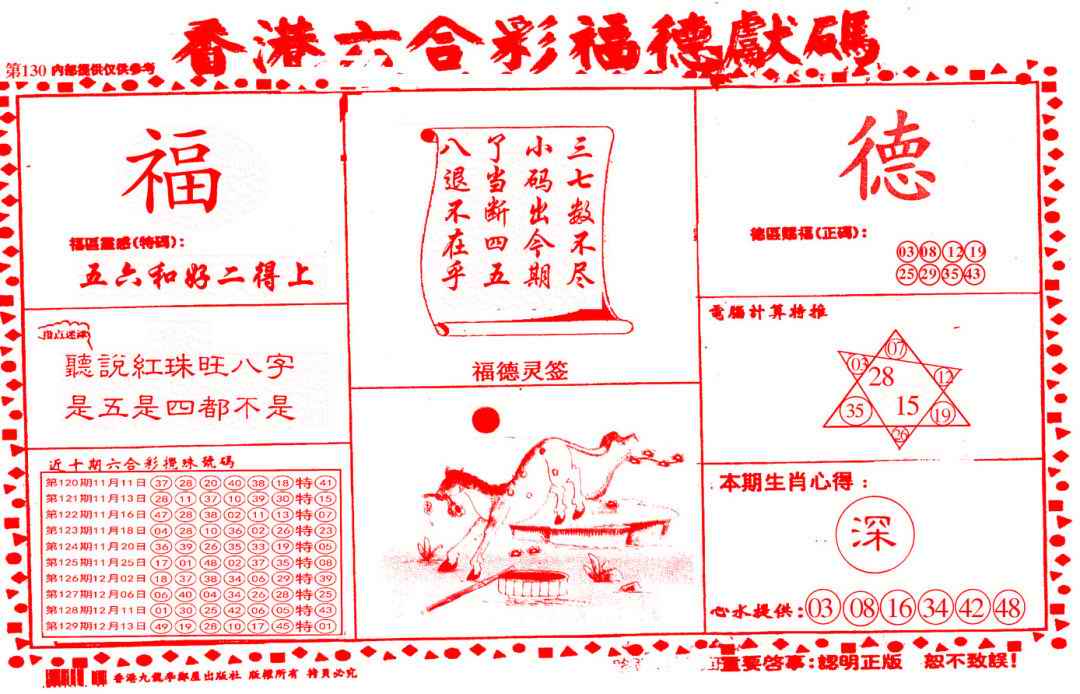 香港六合彩福德獻碼
第130 内部提供仅供参考
福
福區靈感(特碼):
五六和好二得上
指点迷津
聽説紅珠旺八字
是五是四都不是
近十期六合彩攪珠號碼
第120期11月11日 37 28 20 40 38 18 特 41
第121期11月13日 28 11 37 10 39 30 特 15
第122期11月16日 47 28 38 02 11 13 特 07
第123期11月18日 04 28 10 36 02 26 特 23
第124期11月20日 36 39 26 35 33 19 特 05
第125期11月25日 17 01 48 02 37 35 特 08
第126期12月02日 18 37 38 34 06 29 特 39
第127期12月06日 06 40 04 34 26 28 特 25
第128期12月11日 01 30 25 42 06 05 特 43
第129期12月13日 49 19 28 10 17 45 特 01
三七数不尽
小码出今期
了当断四五
八退不在乎
福德灵签
德
德區賜福(正碼):
03 08 12 19
25 29 35 43
電腦計算特推
07
03 28 12
35 15 19
26
本期生肖心得:
深
心水提供: 03 08 16 34 42 48
香港九龍學鄰屋出版社 版權所有
重要啓事:認明正版 恕不致誤!